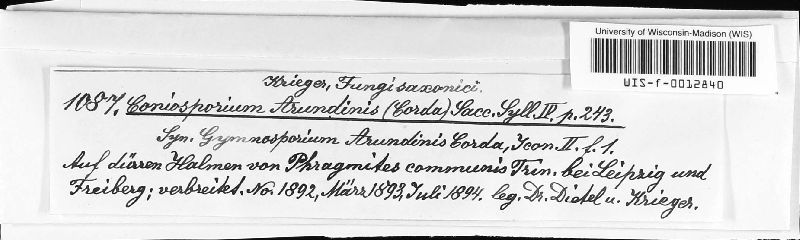 University of Wisconsin-Madison (WIS)
WIS-f-0012840
Krieger, Fungi saxonici.
1087. Coniosporium Arundinis (Corda) Sacc. Syll. IV. p. 243.
Syn. Gymnosporium Arundinis Corda, Icon. II. f. 1.
Auf dürren Halmen von Phragmites communis Trin. bei Leipzig und
Freiberg; verbreitet. No. 1892, März 1893, Juli 1894. leg. Dr. Dietel u. Krieger.